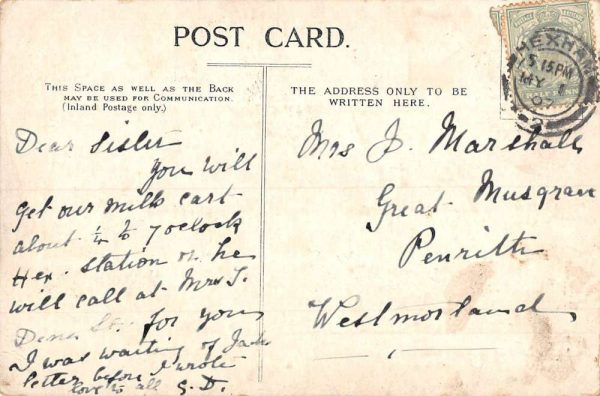 POST CARD.
THIS SPACE AS WELL AS THE BACK
MAY BE USED FOR COMMUNICATION.
(Inland Postage only.)
THE ADDRESS ONLY TO BE
WRITTEN HERE.
HEXHAM
5 15 PM
MY
07
2
Dear Sister
You will
get our milk cart
about ¼ to 7 oclock
Hex. Station or he
will call at Mrs
for you
I was waiting of
letter before I wrote
love to all S.D.
Mrs J. Marshall
Great Musgrave
Penrith
Westmorland